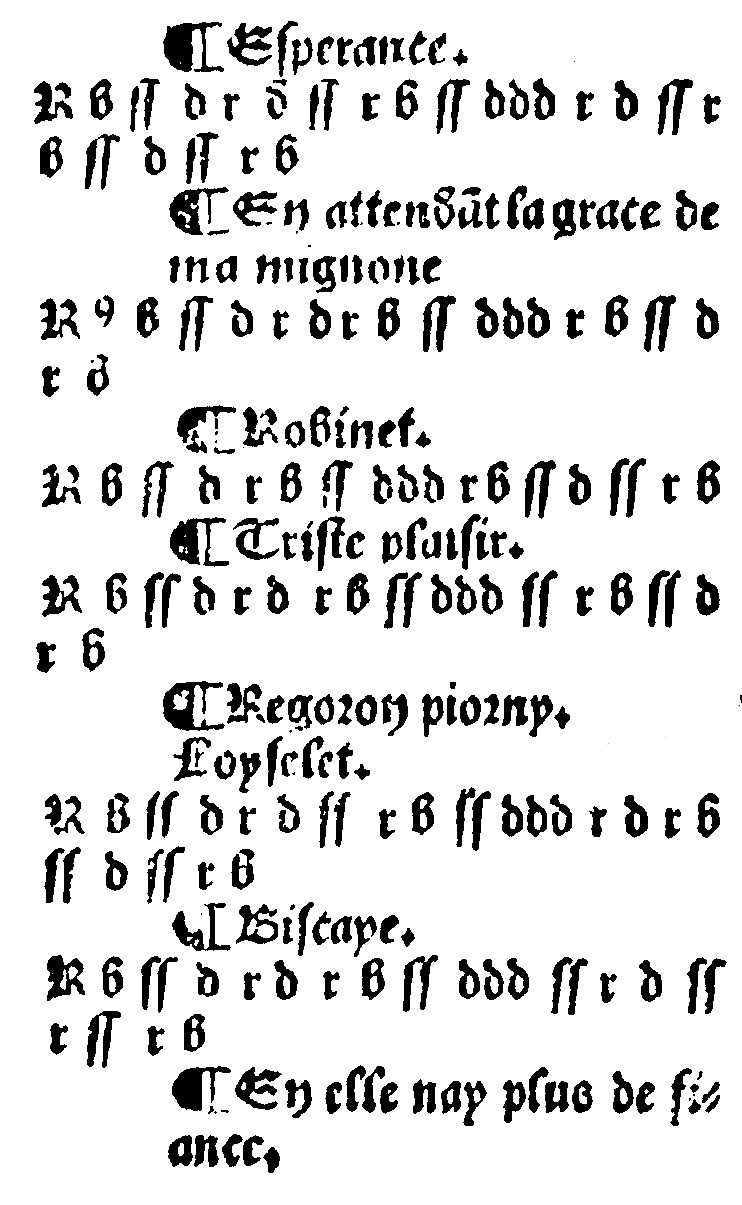 ¶ Esperance.
R b ſſ d r d̄ ſſ r b ſſ ddd r d ſſ r
b ſſ d ſſ r b
¶ En attendāt la grace de
ma mignone
R 9 b ſſ d r d r b ſſ ddd r b ſſ d
r b
¶ Robinet.
R b ſſ d r b ſſ ddd r b ſſ d ſſ r b
¶ Triste plaisir.
R b ſſ d r d r b ſſ ddd ſſ r b ſſ d
r b
¶ Regoron piorny.
Loyſelet.
R b ſſ d r d ſſ r b ſſ ddd r d r b
ſſ d ſſ r b
¶ Biſcaye.
R b ſſ d r d r b ſſ ddd ſſ r d ſſ
r ſſ r b
¶ En elle nay plus de fi⸗
ance.